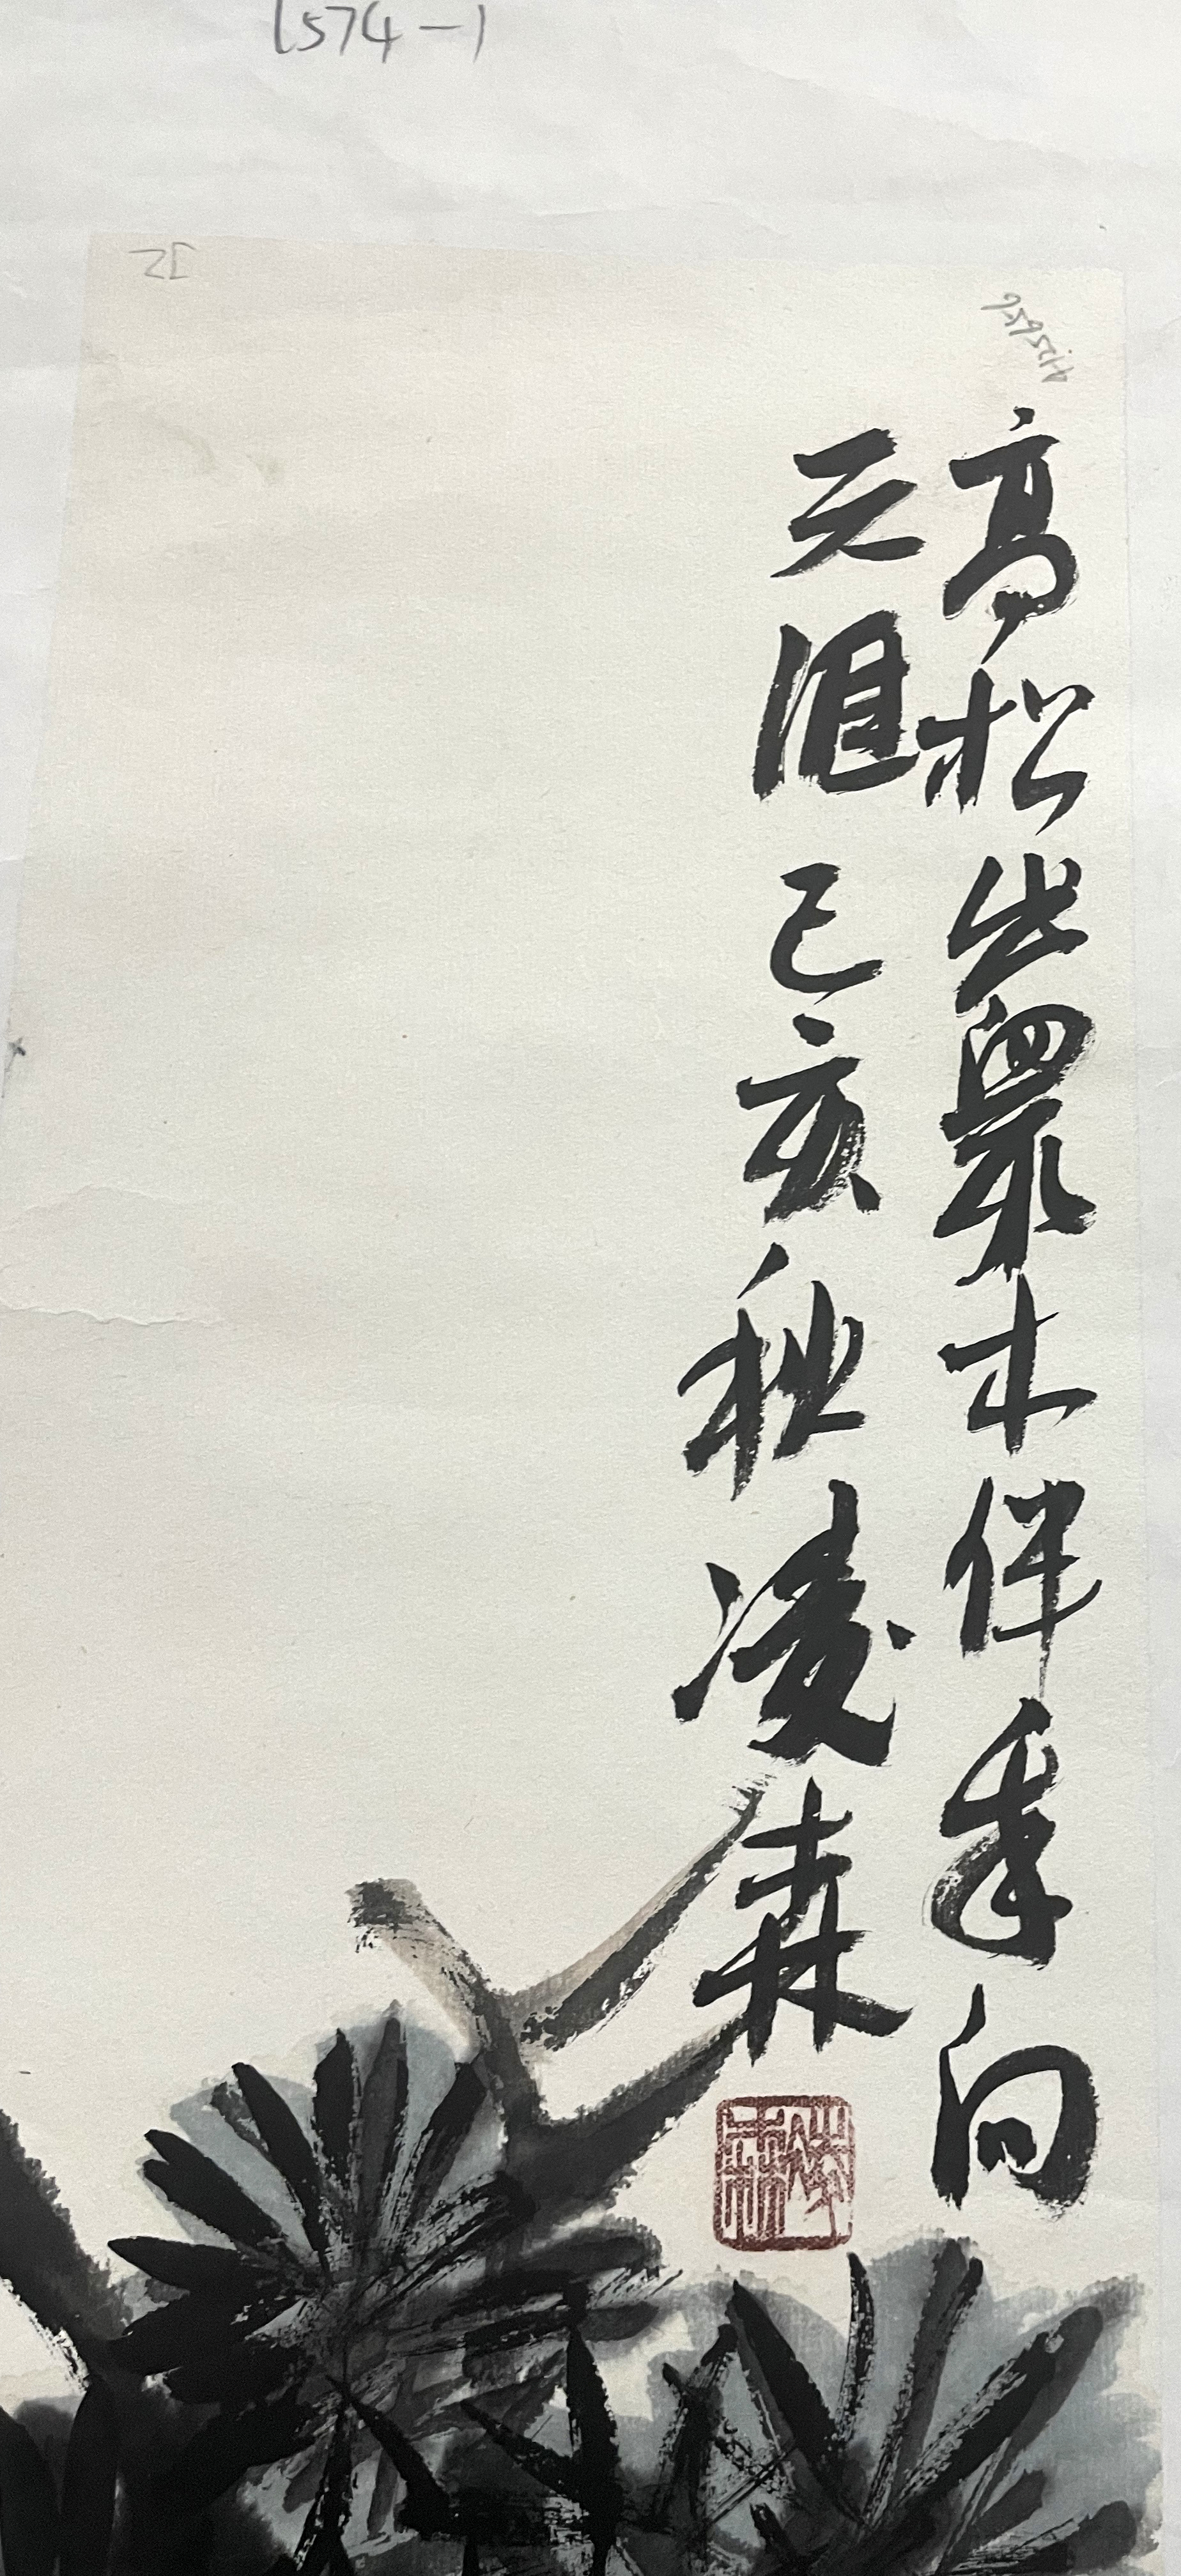 1574-1
高松出眾木伴我向
天涯 己亥秋 凌森